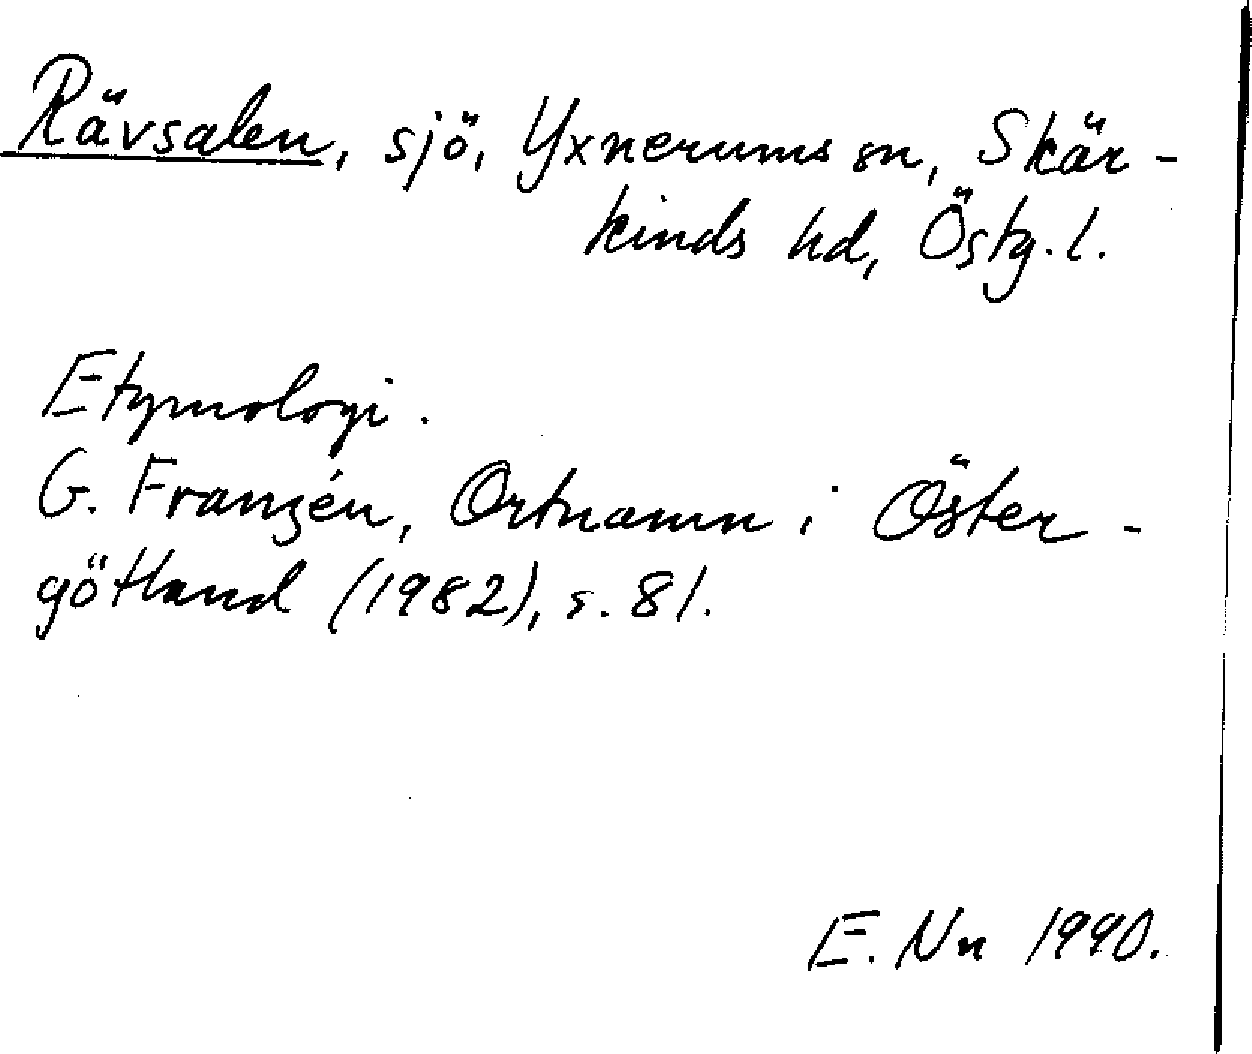 Rävsalen, sjö, Yxnerums sn, Skär-
kinds hd, Östg. l.
Etymologi.
G. Franzén, Ortnamn i Öster-
götland (1982), s. 81.
E. Nn 1990.